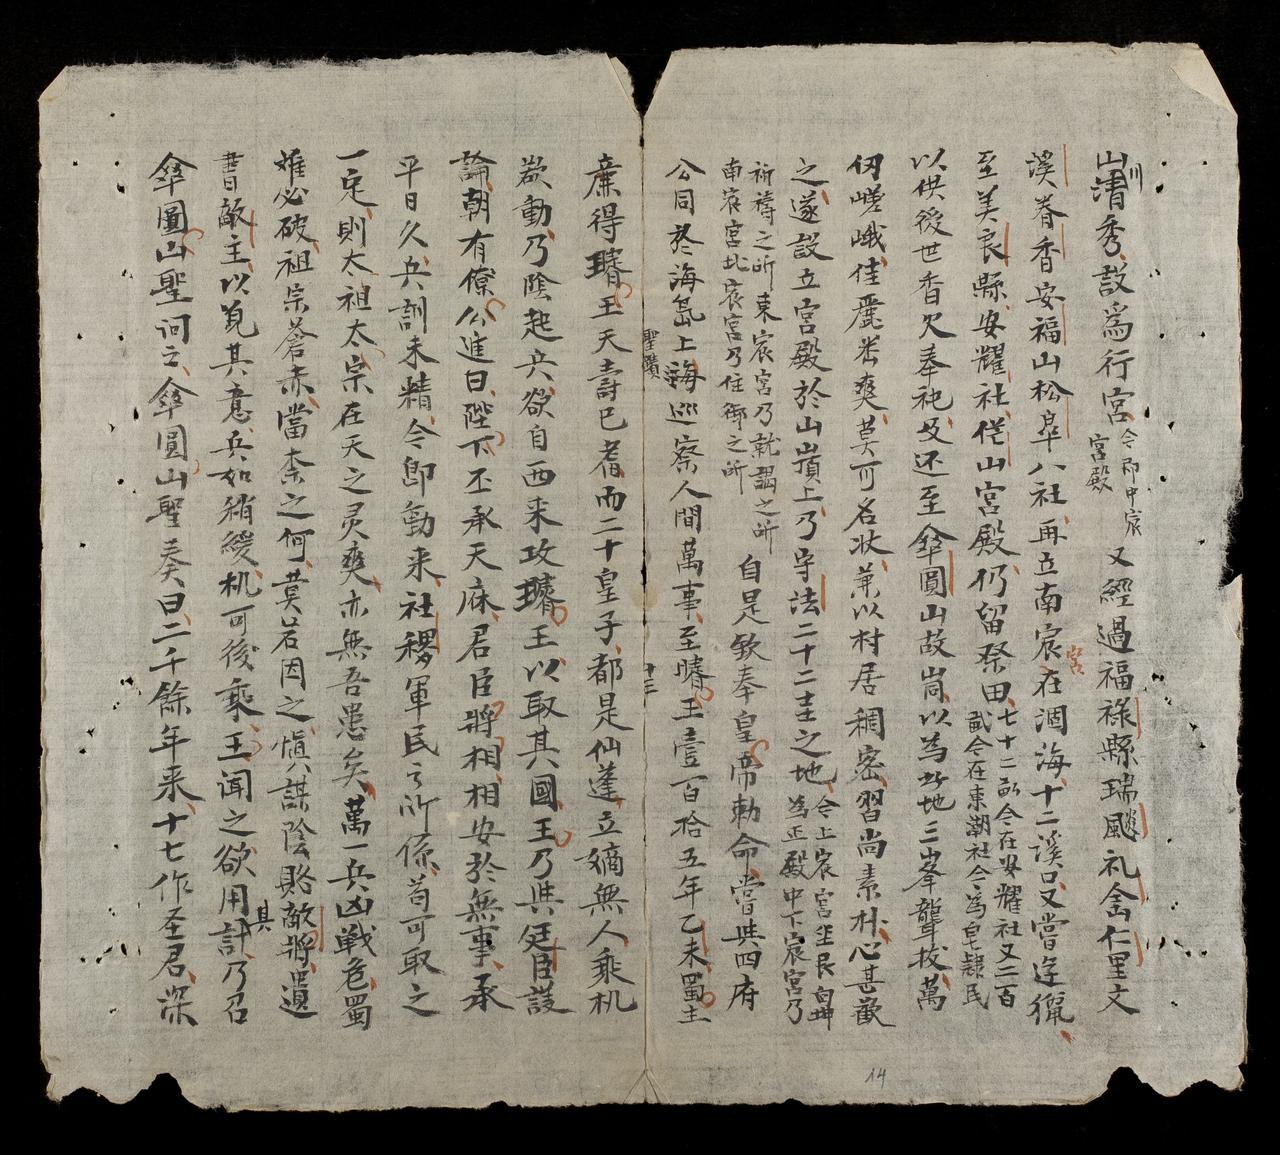 山川清秀設爲行宮今郡中宸宮殿又經過福祿縣瑞颷礼舍仁里文
溪眷香安福山松皐八社再立南宸宮在涠海十二溪口又嘗逰獵
至美良縣安耀社傞山宮殿仍留祭田七十二所今在安耀社又二百貳今在東潮社今爲皂隷民
以供後世香欠奉祀及还至傘圓山故峝以為此地三峯聳拔萬
仭嵯峨佳麗岧爽莫可名状兼以村居稠密習尚素朴心甚歡
之遂設立宮殿於山嵿上乃守法二十二圭之地今上宸宮坐艮向坤為正殿中下宸宮乃
祈禱之所東宸宮乃就謁之所南宸宮北宸宮乃住御之所自是欽奉皇帝勅命嘗與四府
公同於海島上海巡察人間萬事至㬐王壹百拾五年乙未蜀主
聖贊
十三
㢘得㻸王天壽已耆而二十皇子都是仙蓬立嫡無人乘机
欲動乃陰起兵欲自西来攻㻸王以取其國王乃與廷臣議
論朝有僚公進曰陛下丕承天庥君臣將相相安於無事承
平日久兵訓未精令卽動来社稷軍民之所係苟可取之
一定則太祖太宗在天之灵爽亦無吾患矣萬一兵凶戦危蜀
難必破祖宗蒼赤當柰之何莫若因之慎謀陰賂敵將遺
書敵主以覓其意兵如稍緩机可後乘王闻之欲用其計乃召
傘圓山聖问之傘圓山聖奏曰二千餘年来十七作圣君深
14